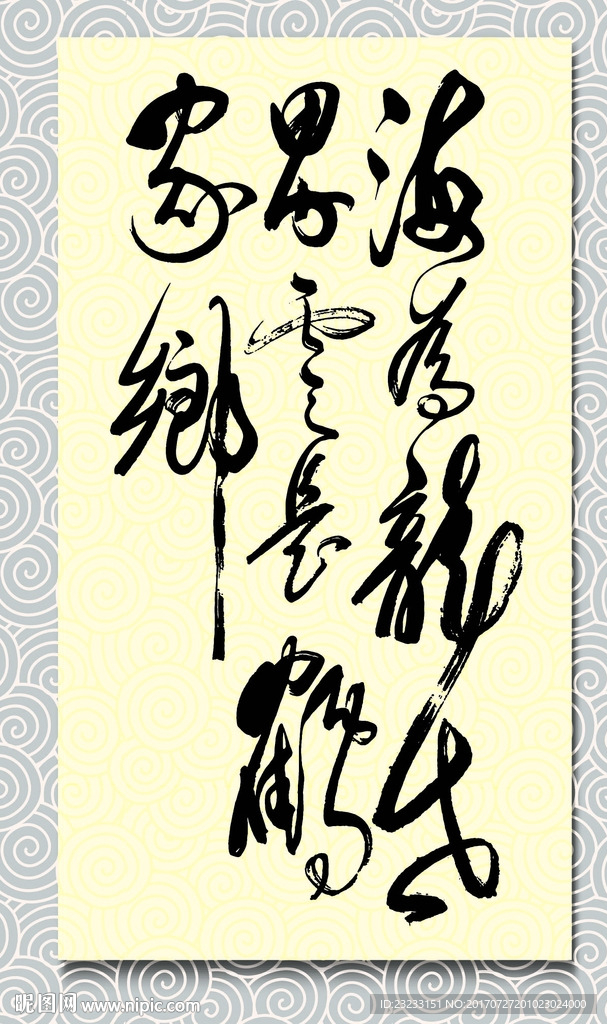 海為龍世
界雲是鶴
家鄉
昵图网 www.nipic.com
ID:23233151 NO:20170727201023024000